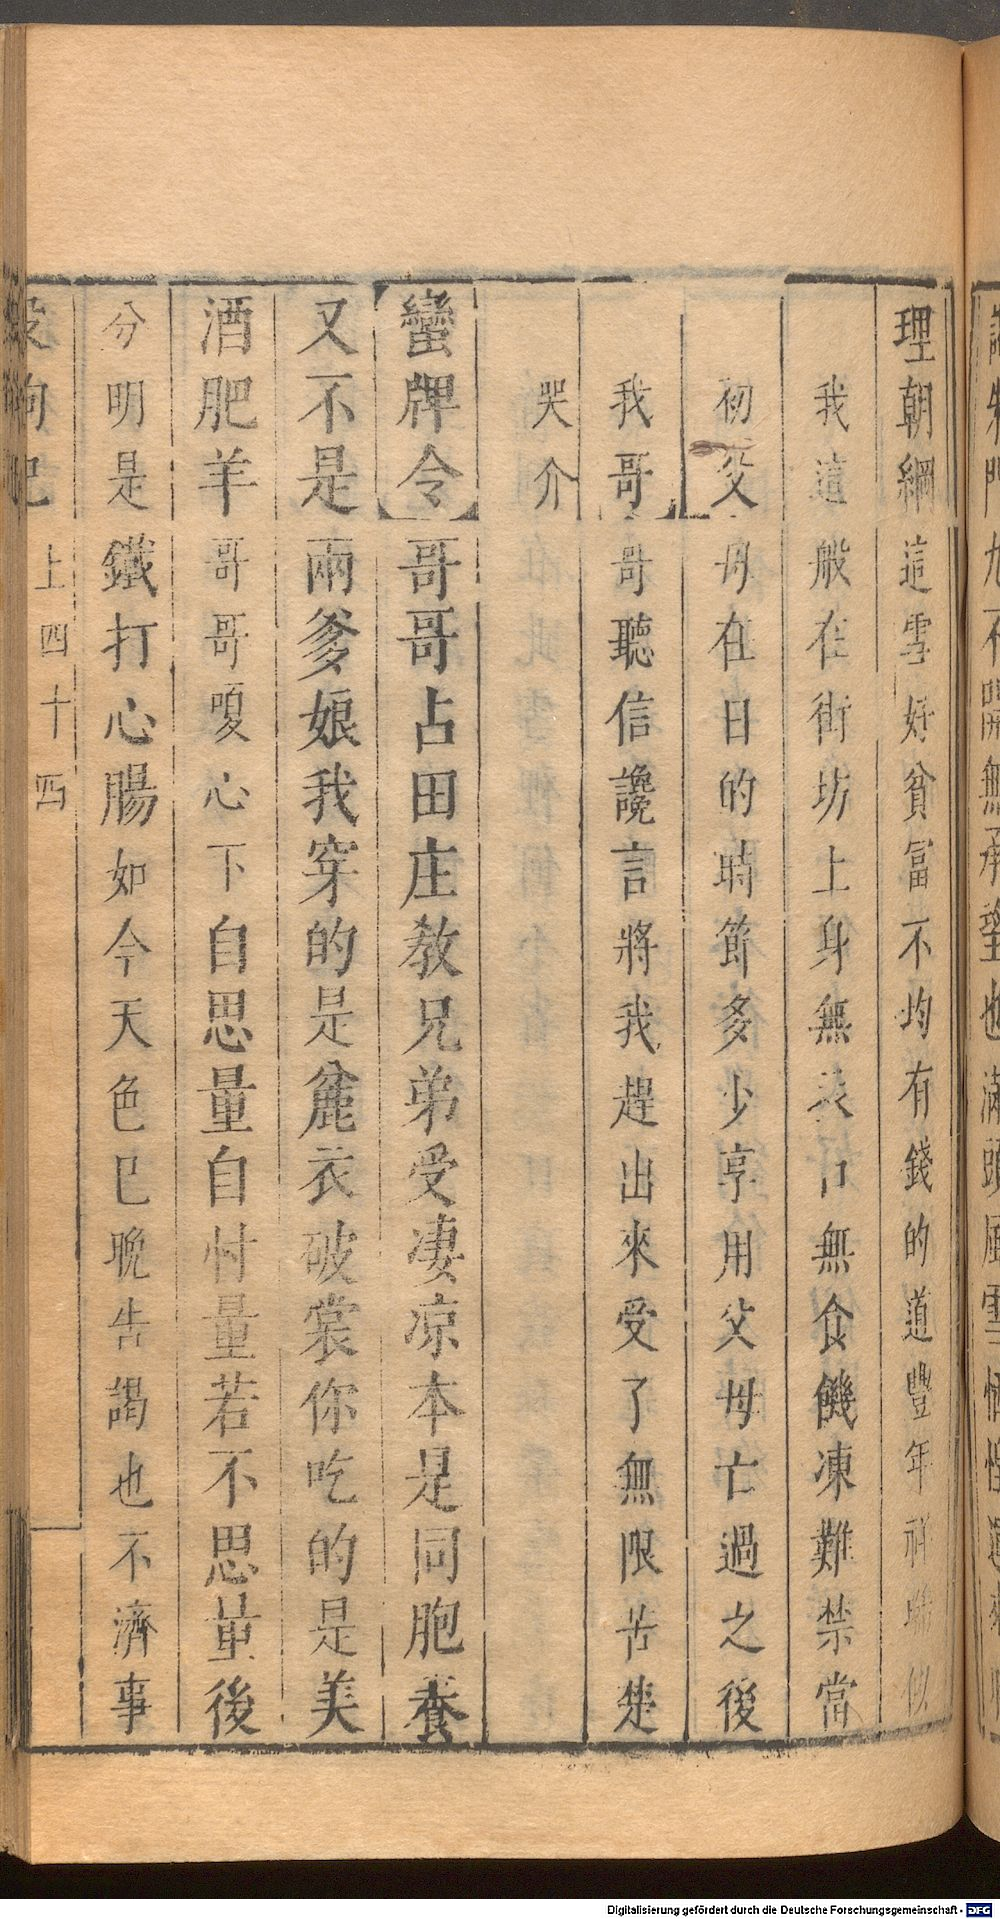 理朝綱這雪好貧富不均有錢的道豐年祥瑞似
我這般在街坊上身無衣口無食饑凍難禁當
初父母在日的時節多少享用父母亡過之後
我哥哥聽信讒言將我趕出來受了無限苦楚
哭介
蠻牌令哥哥占田庄教兄弟受凄凉本是同胞養
又不是兩爹娘我穿的是麄衣破裳你吃的是美
酒肥羊哥哥嗄心下自思量自忖量若不思量後
分明是鐵打心腸如今天色已晚告謁也不濟事
殺狗記 上四十四
Digitalisierung gefördert durch die Deutsche Forschungsgemeinschaft - DFG